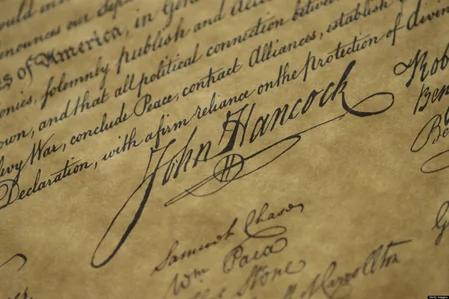 ould in
nounces our Sepa
s of America, in Gener
onies, solemnly publish and
own, and that all political connection between
levy War, conclude Peace, contract Alliances, establish
Declaration, with a firm reliance on the protection of divine
John Hancock
Rob
Ben
Samuel Chase
Wm Paca
Stone